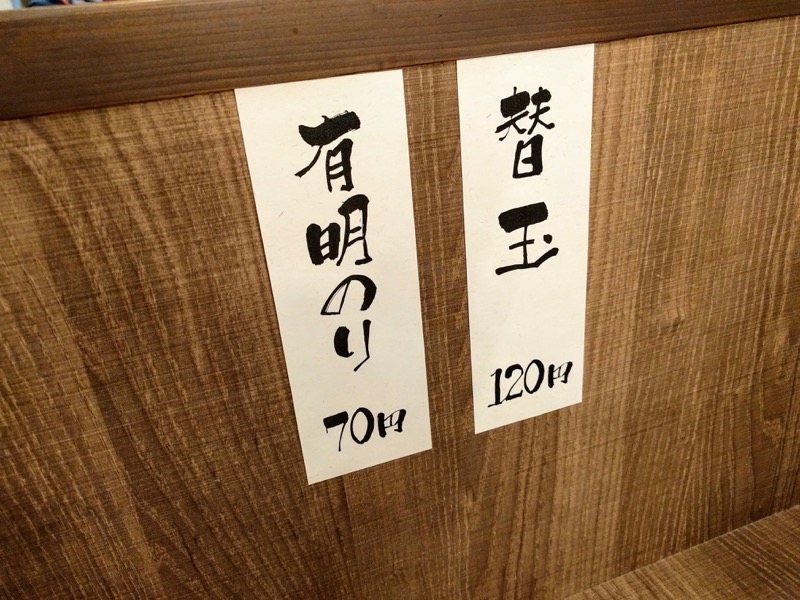 替玉
120円
有明のり
70円